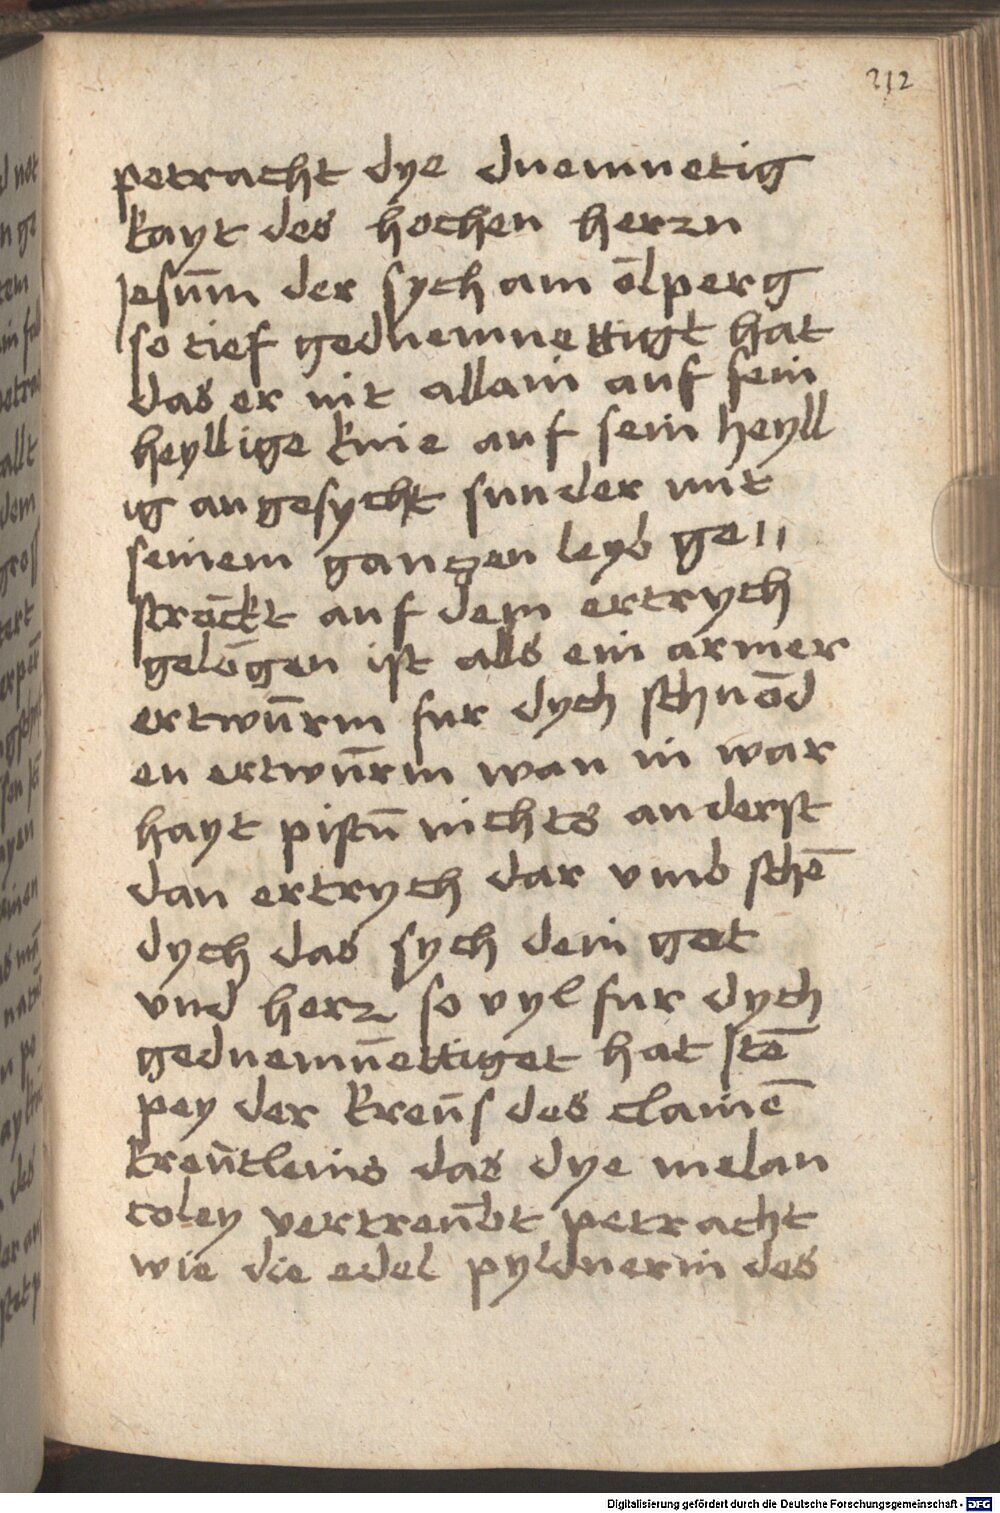 212
petracht dye duemuetig
kayt des hochen herzn
Jesūm der sych am ōlperg
so tief geduemuettigt hat
das er nit allain auf sein
heyllige knie auf sein heyll
ig angesycht sunder mit
seinem ganczen leyb ge//
strōckt auf dem ertrych
gelōgen ist als ein armer
ertwūrm fur dych schnōd
en ertwūrm wan in war
hayt pistū nichts anderst
dan ertrych dar vmb schē
dych das sych dein got
vnd herz so vyl fur dych
geduemūettiget hat stē
pey der kreūs des clainē
kreūtleins das dye melan
coley vertreūbt petracht
wie die edel pyldnerin des
Digitalisierung gefördert durch die Deutsche Forschungsgemeinschaft - DFG